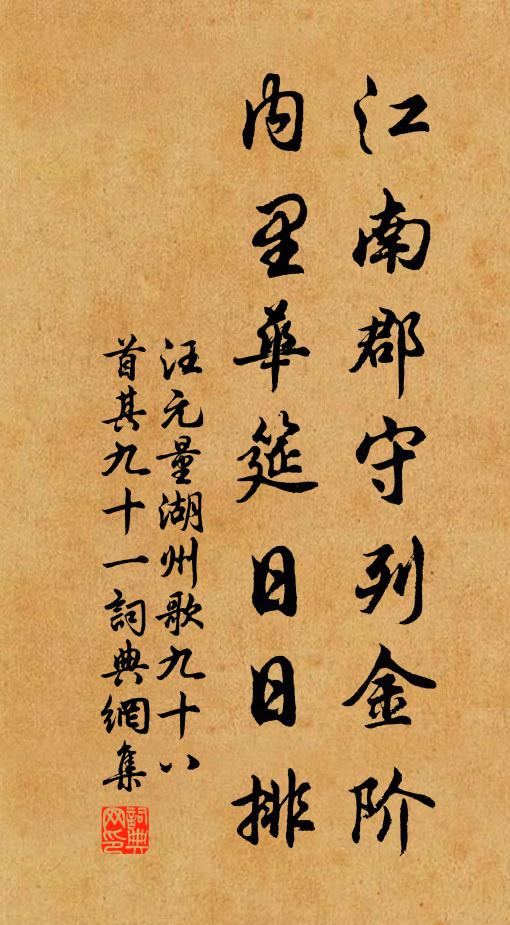 江南郡守列金阶
内里华筵日日排
汪元量湖州歌九十八
首其九十一詞典網集
詞典网印